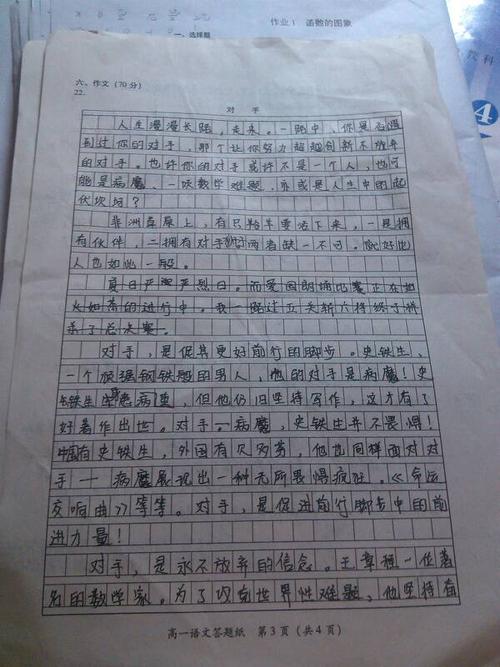 作业1 函数的图象
一、选择题
教科
4
六、作文(70分)
22.
对手
人生漫漫长路,走来。一路中,你是否遇
到过你的对手,那个让你努力超越创新不放弃
的对手。也许你的对手或许不是一个人,也可
能是病魔、一味数学难题,亦或是人生中的起
伏坎坷?
非洲草原上,有只羚羊要活下来,一是拥
有伙伴,二拥有对手两者缺一不可。就好比
人也如此一般。
夏日严严烈日。而爱国朗诵比赛正在如
火如荼的进行中。我一路过五关斩六将终于拼
杀了总决赛。
对手,是促其更好前行的脚步。史铁生,
一个顽强钢铁般的男人,他的对手是病魔!史
铁生生患病重,但他仍旧坚持写作,这才有了
好著作出世。对手,病魔,史铁生并不畏惧!
中国有史铁生,外国有贝多芬,他也同样面对对
手——病魔展现出一种无所畏惧疯狂。《命运
交响曲》等等。对手,是促进前行脚步中的前
进力量!
对手,是永不放弃的信念。王章程一位著
名的数学家。为了攻克世界性难题,他坚持有
高一语文答题纸 第3页(共4页)